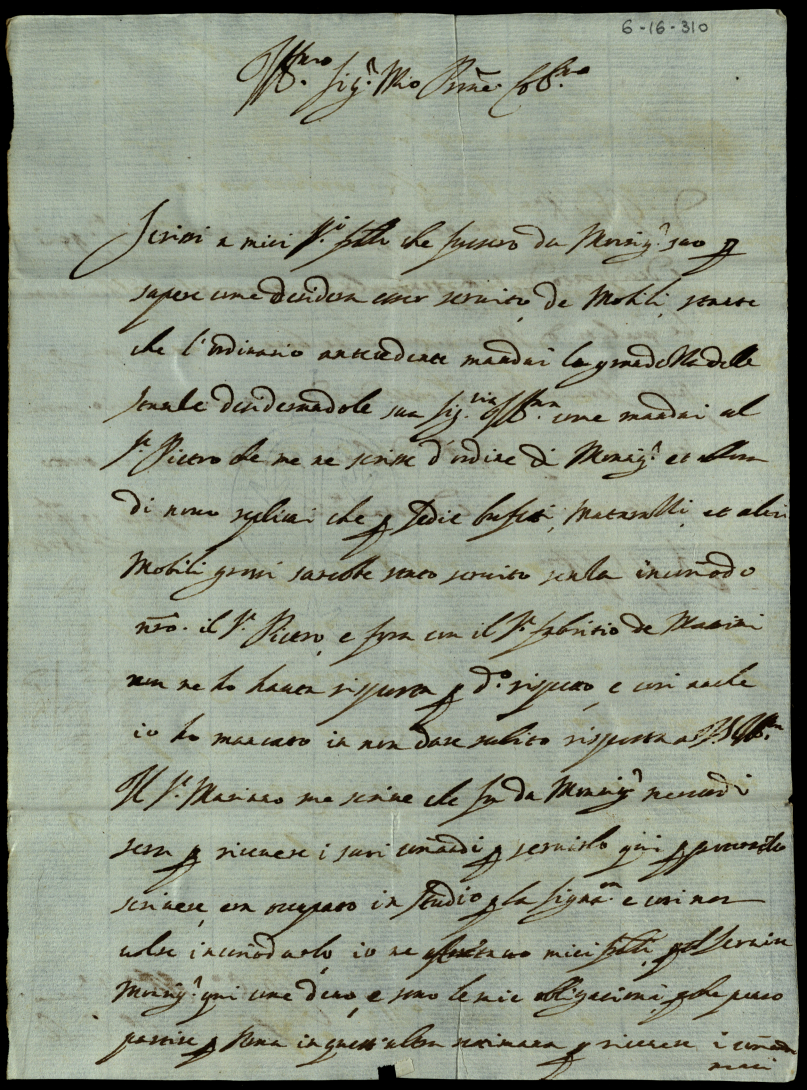 6-16-310
Ill.mo Sig.r Mio P.rone Col.mo
Scrissi a miei S.ri frelli che fussero da Monsig.r suo p
sapere come desidera esser servito de Mobili, stante
che l'ordinario antecedente mandai la gradella delle
stanze desiderandole sua Sig.ria Ill.ma come mandai al
S.r Pietro che me ne scrisse d'ordine di Monsig.r et allora
di novo replicai che p sedie buffetti, Matarazzi, et altri
Mobili grossi sarebbe stato servito senza incomodo
nro. il S.r Pietro, e fora con il S.r fabritio de Massimi
non ne ho hauta risposta p d.o rispetto, e cosi anche
io ho mancato in non dare subito risposta a VS Ill.ma
Il S.r Mariano me scrive che fu da Monsig.r mercordi
sera p ricevere i suoi comandi p servirlo qui p
scrivere, era occupato in studio p la Signa.ra e cosi non
volse incomodarlo, io ne miei frelli p servire
Monsig.r qui come devo, e sono le mie obligationi, che penso
partire p Roma in quest'altra settimana p ricevere i coman